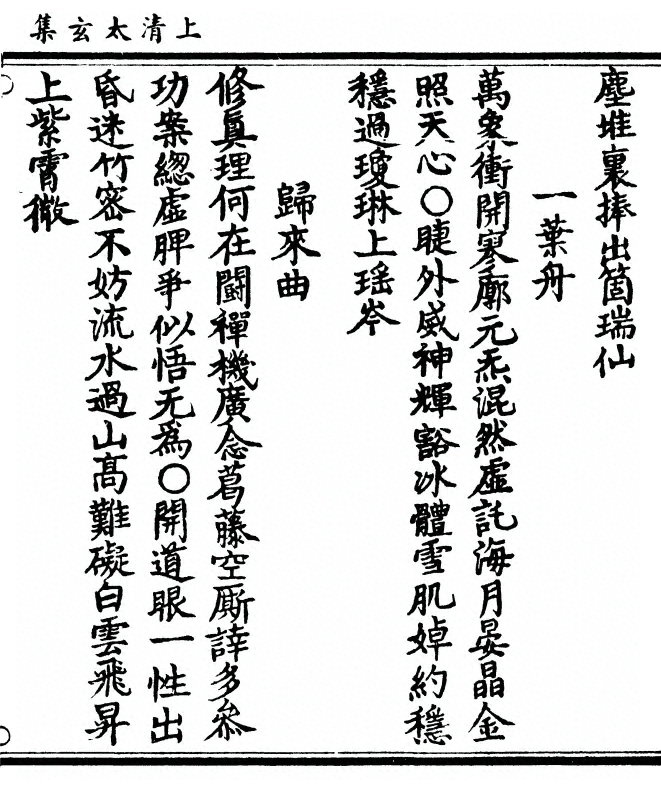 上清太玄集
塵堆裏捧出箇瑞仙
一葉舟
萬象衝開寥廓元炁混然虛託海月晏晶金
照天心〇睫外威神輝豁冰體雪肌婥約穩
穩過瓊琳上瑶岑
歸來曲
修真理何在鬭禪機廣念葛藤空厮諱多叅
功案緫虛脾爭似悟无為〇開道眼一性出
昏迷竹密不妨流水過山髙難礙白雲飛昇
上紫霄微